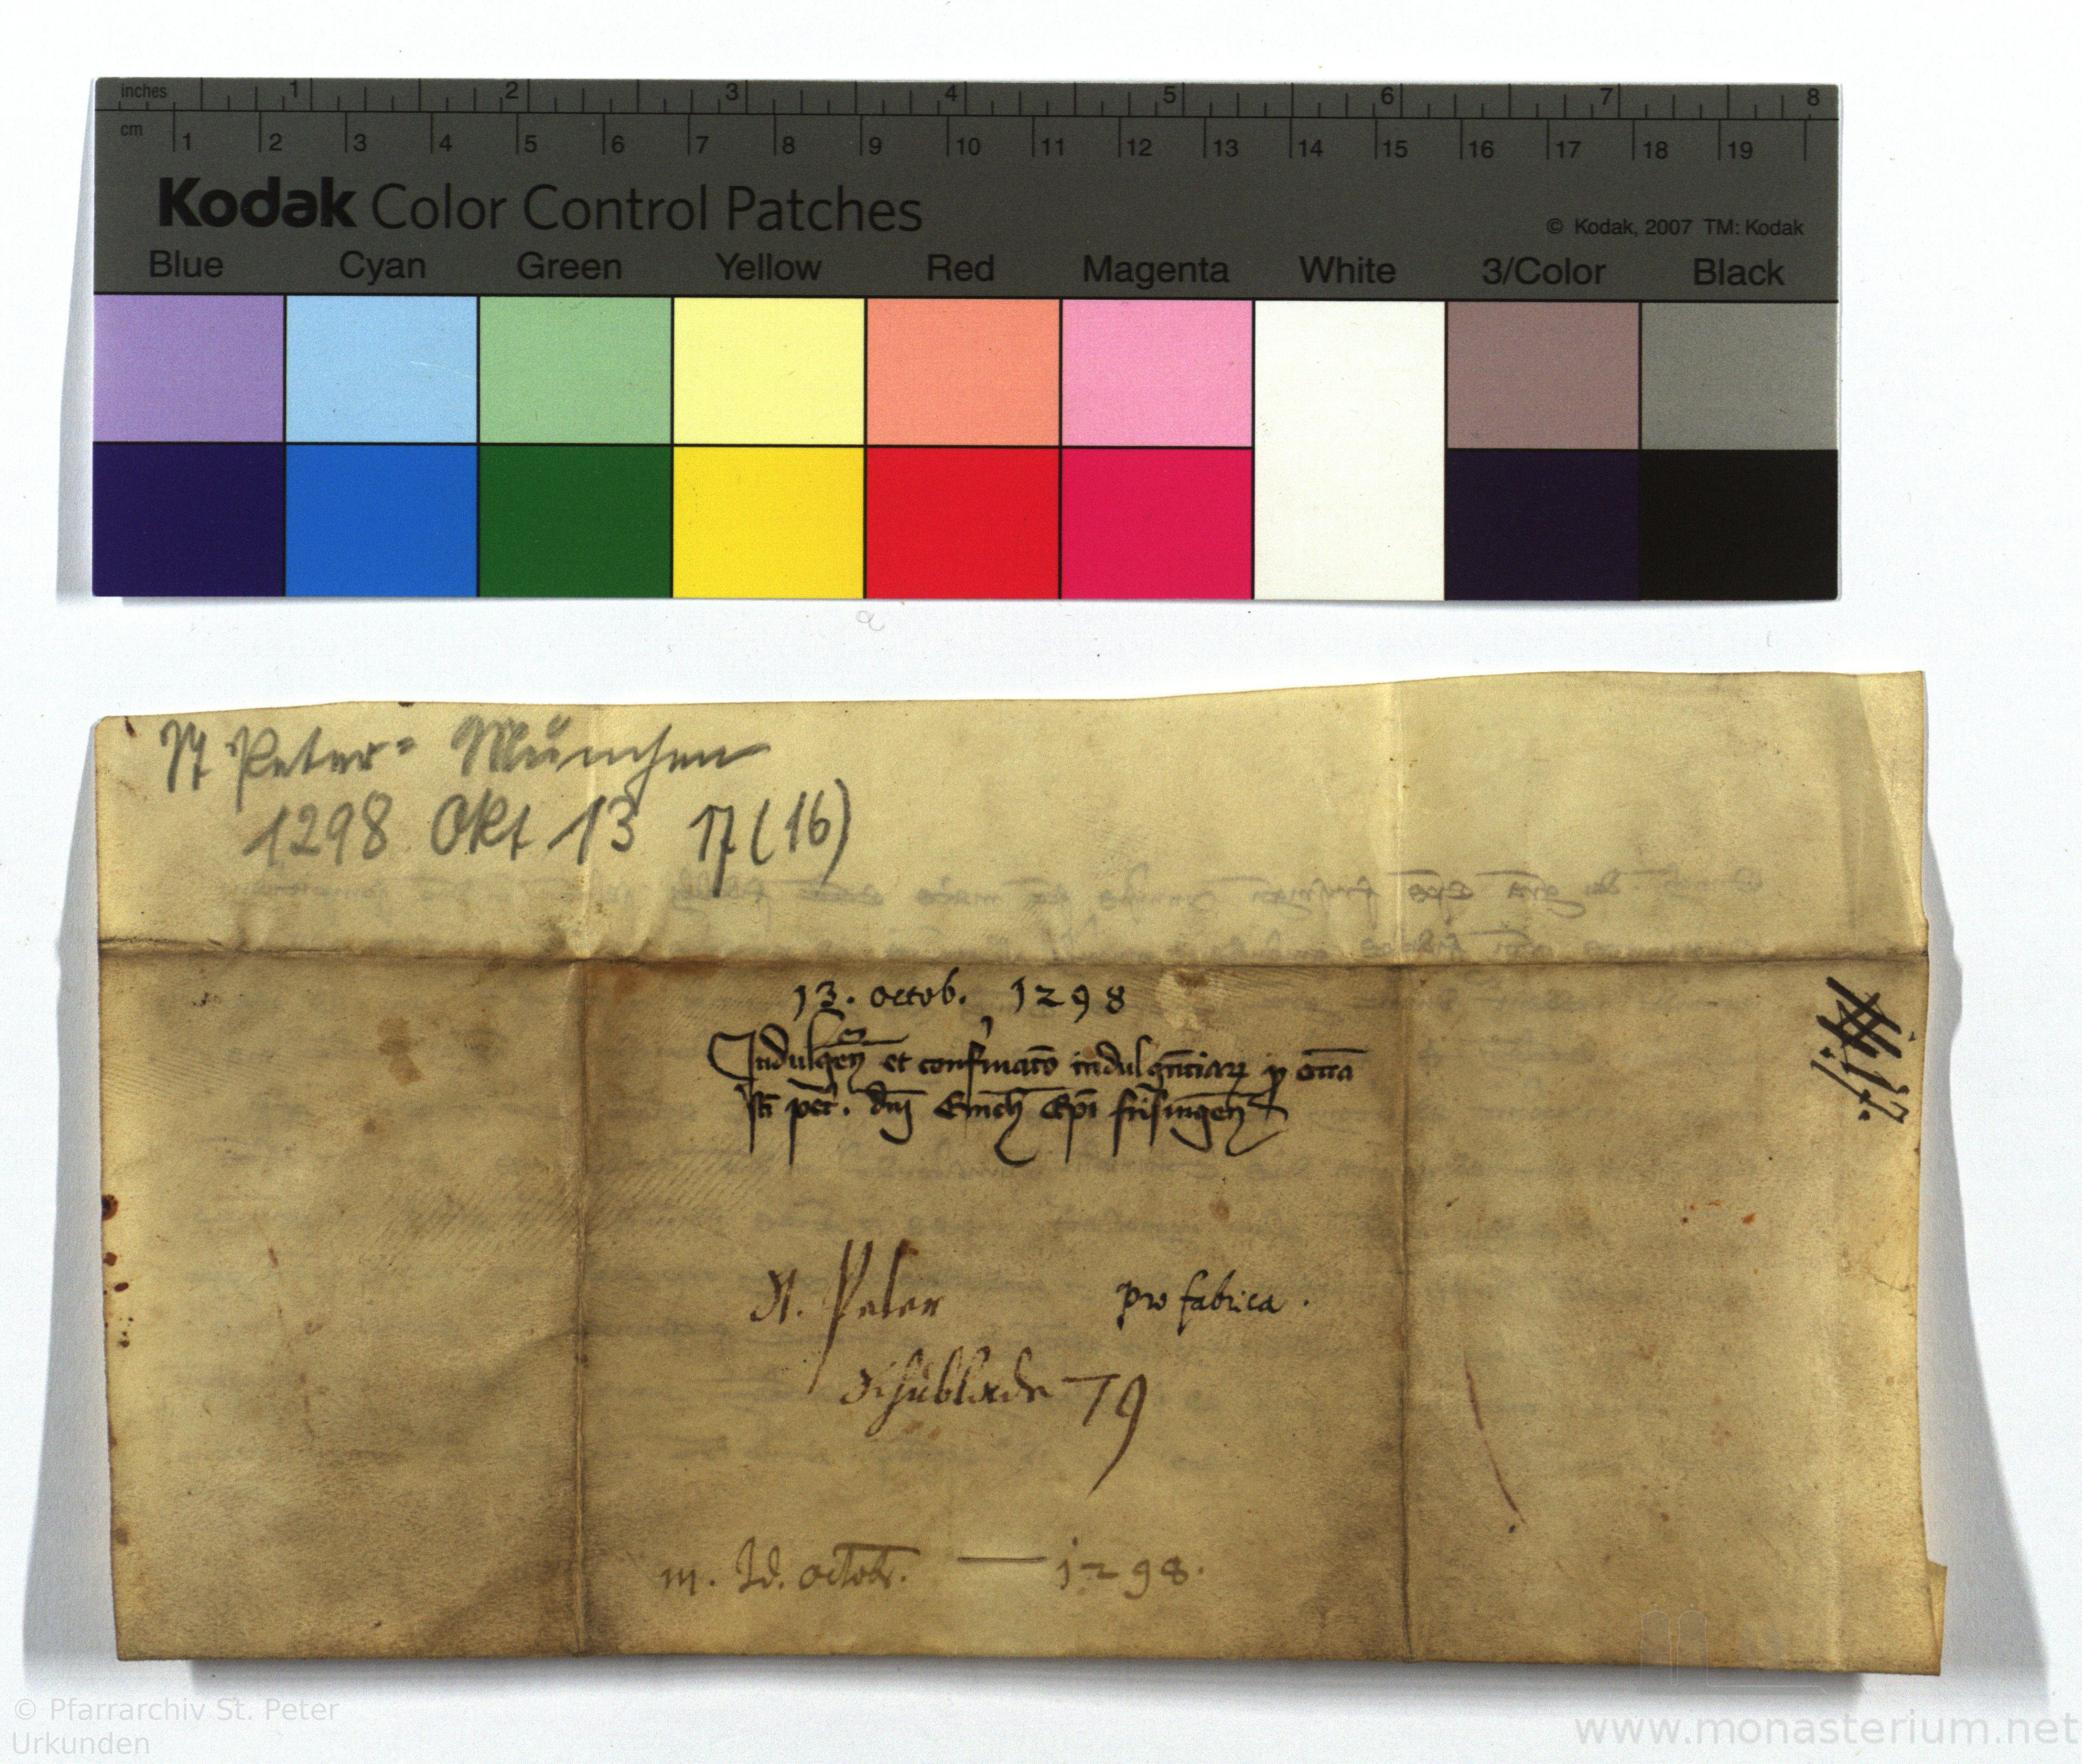 inches 1 2 3 4 5 6 7 8
cm 1 2 3 4 5 6 7 8 9 10 11 12 13 14 15 16 17 18 19
Kodak Color Control Patches
© Kodak, 2007 TM: Kodak
Blue Cyan Green Yellow Red Magenta White 3/Color Black
St Peter= München
1298 Okt 13 17 (16)
13. octob. 1298
Indulgen̄ et confirmatō indulgn̄tiaꝝ ꝓ
sti pet. dn̄j Emch̄ Epī frisingen̄
St. Peter pro fabrica.
Schublade 79
III. Id. octob. — 1298.
© Pfarrarchiv St. Peter
Urkunden
www.monasterium.net